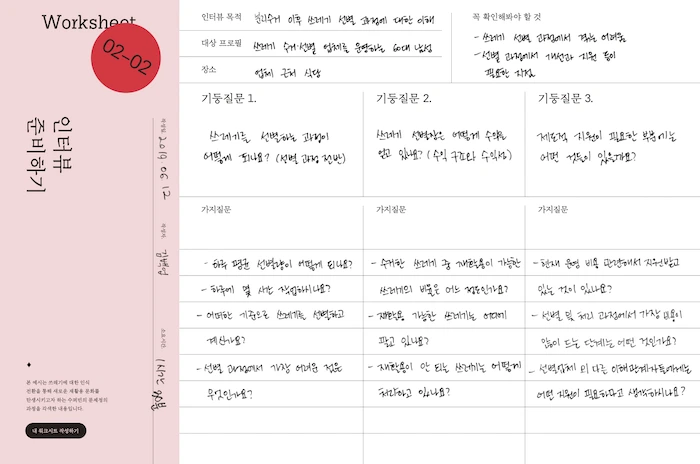 Worksheet
02-02
인터뷰
준비하기
작성일 2019. 06. 12
작성자
소요시간 1시간 30분
본 예시는 쓰레기에 대한 인식
전환을 통해 새로운 재활용 문화를
탄생시키고자 하는 수퍼빈의 문제정의
과정을 각색한 내용입니다.
내 워크시트 작성하기
인터뷰 목적 분리수거 이후 쓰레기 선별 과정에 대한 이해
대상 프로필 쓰레기 수거·선별 업체를 운영하는 60대 남성
장소 업체 근처 식당
꼭 확인해봐야 할 것
- 쓰레기 선별 과정에서 겪는 어려움
- 선별 과정에서 개선과 지원 등이
필요한 지점
기둥질문 1.
쓰레기를 선별하는 과정이
어떻게 되나요? (선별 과정 전반)
기둥질문 2.
쓰레기 선별장은 어떻게 수익을
얻고 있나요? (수익 구조와 수익성)
기둥질문 3.
제도적 지원이 필요한 부분에는
어떤 것들이 있을까요?
가지질문
- 하루 평균 선별량이 어떻게 되나요?
- 하루에 몇 시간 작업하시나요?
- 어떠한 기준으로 쓰레기를 선별하고
계신가요?
- 선별 과정에서 가장 어려운 점은
무엇인가요?
가지질문
- 수거한 쓰레기 중 재활용이 가능한
쓰레기의 비율은 어느 정도인가요?
- 재활용 가능한 쓰레기는 어디에
팔고 있나요?
- 재활용이 안 되는 쓰레기는 어떻게
처리하고 있나요?
가지질문
- 현재 운영 비용 관련해서 지원받고
있는 것이 있나요?
- 선별 및 처리 과정에서 가장 비용이
많이 드는 단계는 어떤 것인가요?
- 선별업체 외 다른 이해관계자들에게는
어떤 지원이 필요하다고 생각하시나요?